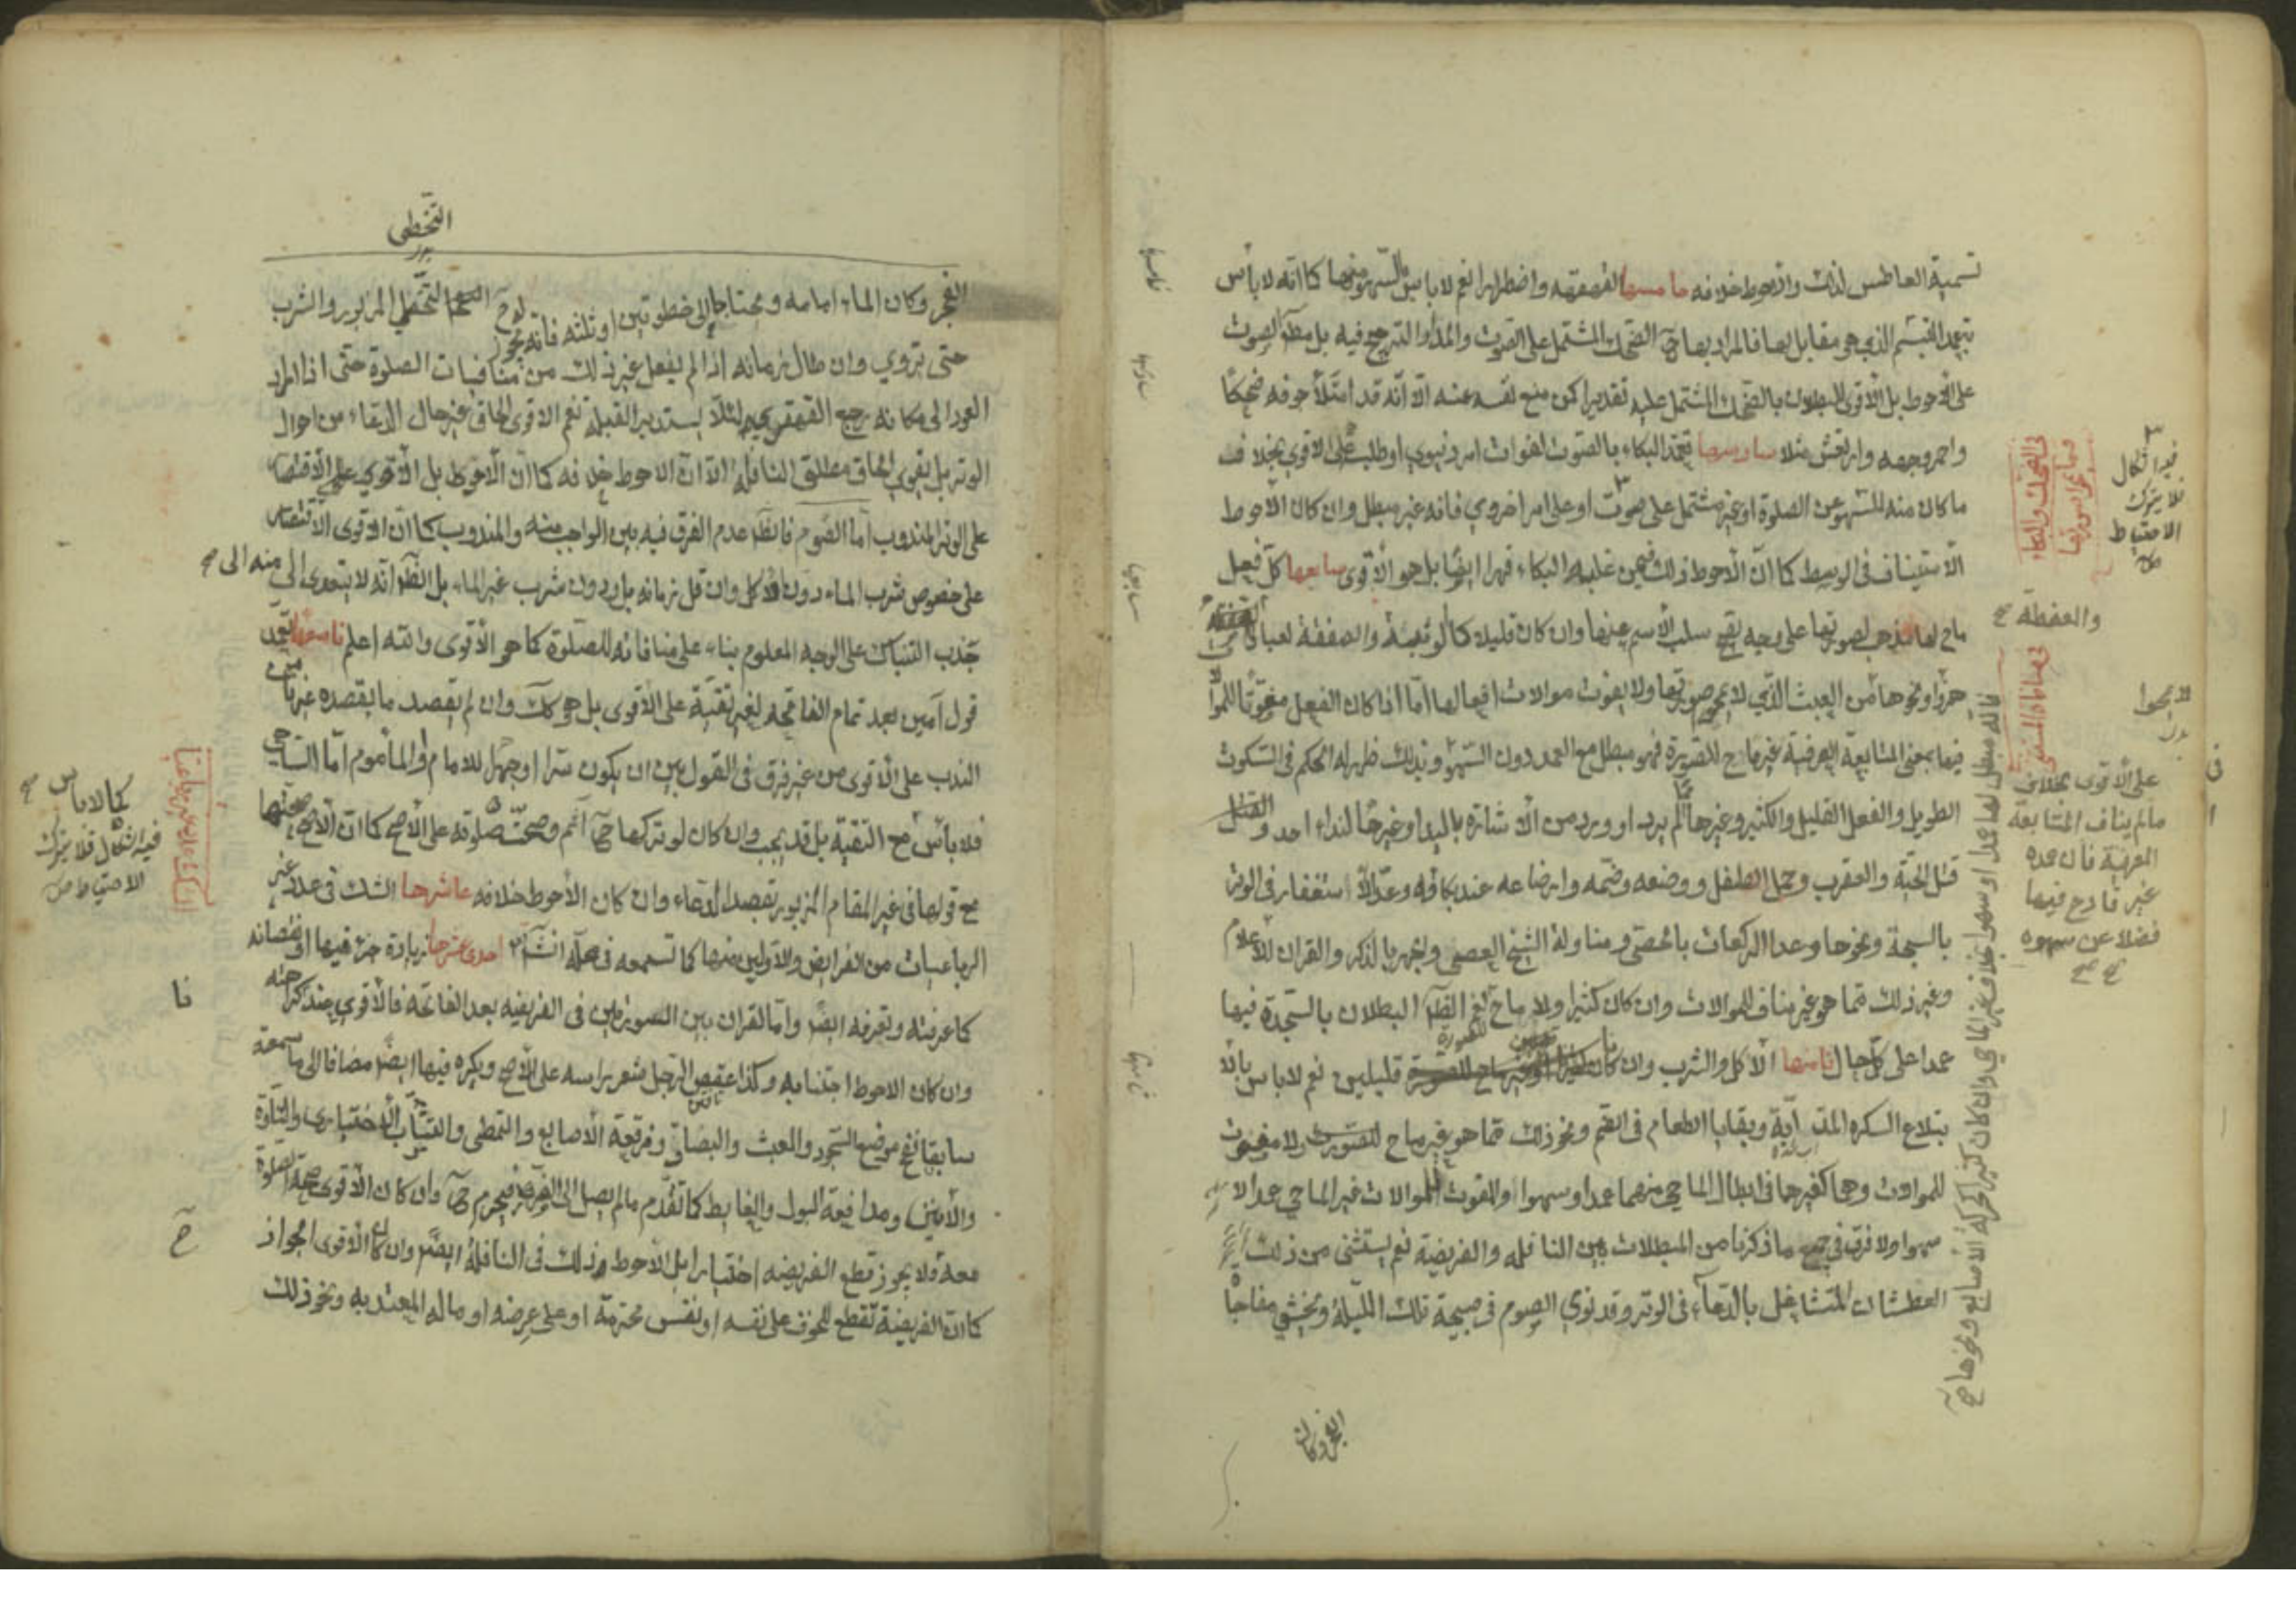 تسمية العاطس لذلك والاحوط خلافه خامسها القهقهه واضطرارا نعم لا باس بالسهو منها كما انه لا بأس
بتعمد التبسم الذي هو مقابل لها فالمراد بها ح الضحك المشتمل على الصوت والمد او الترجيع فيه بل مطلق الصوت
على الاحوط بل الاقوى البطلان بالضحك المشتمل عليه تقديرا كمن منع نفسه عنه الا انه قد امتلأ جوفه ضحكا
واحمر وجهه وارتعش مثلا سادسها تعمد البكاء بالصوت لفوات امر دنيوي او طلبه على الاقوى بخلاف
ما كان منه للسهو عن الصلوة او غير مشتمل على صوت او على امر اخروي فانه غير مبطل وان كان الاحوط
الاستيناف في الوسط كما ان الاحوط ذلك فيمن غلبه البكاء قهرا ايضا بل هو الاقوى سابعها كل فعل
ماح لها مذهب لصورتها على وجه يصح سلب الاسم عنها وان كان قليلا كالوثبة والصفقة لعبا
هزؤا ونحوها من العبث الذي لا يمحو صورتها ولا يفوت موالات افعالها اما اذا كان الفعل مفوتا للموالا
فيها بمعنى المتابعة العرفية غير ماح للصورة فهو مبطل مع العمد دون السهو وبذلك ظهر له الحكم في السكوت
الطويل والفعل القليل والكثير وغيرها مما لم يرد او ورد من الاشارة باليد او غيرها لنداء احد
قتل الحية والعقرب وحمل الطفل ووضعه وضمه وارضاعه عند بكائه وعد الاستغفار في الوتر
بالسبحة ونحوها وعد الركعات بالحصى ومناولة الشيخ العصى والجهر بالذكر والقران للاعلام
وغير ذلك مما هو غير مناف للموالات وان كان كثيرا ولا ماح نعم الظ البطلان بالسجدة فيها
عمدا على كل حال ثامنها الاكل والشرب وان كانا قليلين نعم لا باس بالا
بتلاع السكره المذابة وبقايا الطعام في الفم ونحو ذلك مما هو غير ماح للصورة ولا مفوت
للموالات وهما كغيرهما في ابطال الماحي منهما عمدا وسهوا والمفوت للموالات غير الماحي عمدا لا
سهوا ولا فرق في جميع ما ذكرنا من المبطلات بين النافله والفريضة نعم يستثنى من ذلك
العطشان المتشاغل بالدعاء في الوتر وقد نوى الصوم في صبيحة تلك الليلة ويخشى مفاجأة
الفجر وكان
فيه اشكال
فلا يترك
الاحتياط
والعفطة
على الاقوى بخلاف
ما لم يناف المتابعة
العرفية فان عمده
غير قادح فيها
فضلا عن سهوه
التخطي
الفجر وكان الماء امامه ومحتاجا الى خطوتين او ثلثه فانه يجوز له التخطي المزبور والشرب
حتى يتروي وان طال زمانه اذا لم يفعل غير ذلك من منافيات الصلوة حتى اذا اراد
العود الى مكانه رجع القهقرى لئلا يستدبر القبلة نعم الاقوى الحاق غير حال الدعاء من احوال
الوتر بل يقوى الحاق مطلق النافله الا ان الاحوط خلافه كما ان الاحوط بل الاقوى الاقتصار
على الوتر المندوب اما الصوم فالظ عدم الفرق فيه بين الواجب منه والمندوب كما ان الاقوى الاقتصار
على خصوص شرب الماء دون الاكل وان قل زمانه بل ودون شرب غير الماء بل الظ انه لا يتعدى منه الى
جذب التنباك على الوجه المعلوم بناء على منافاته للصلوة كما هو الاقوى والله اعلم تاسعها تعمد
قول آمين بعد تمام الفاتحه لغير تقية على الاقوى بل هو كك وان لم يقصد ما يقصده غيرنا من
الندب على الاقوى من غير فرق في القول بين ان يكون سرا او جهرا للامام والمأموم اما الساهي
فلا بأس مع التقية بل قد يجب وان كان لو تركها ح اثم وصحت صلوته على الاصح كما ان الاصح صحتها
مع قولها في غير المقام المزبور بقصد الدعاء وان كان الاحوط خلافه عاشرها الشك في عدد غير
الرباعيات من الفرايض والاولين منها كما تسمعه في محله انش احدى عشرها زيادة جزء فيها او نقصانه
كما عرفته وتعرفه ايض واما القران بين السورتين في الفريضه بعد الفاتحه فالاقوى عندي كراهته
وان كان الاحوط اجتنابه وكذا عقص الرجل شعر راسه على الاصح ويكره فيها ايضا مضافا الى ما سمعته
سابقا نفخ موضع السجود والعبث والبصاق وفرقعة الاصابع والتمطي والتثأب الاختياري والتأوه
والانين ومدافعة البول والغايط كما تقدم ما لم يصل الى الضرر فيحرم ح وان كان الاقوى صحة الصلوة
معه ولا يجوز قطع الفريضه اختيارا بل الاحوط ذلك في النافلة ايضا وان كان الاقوى الجواز
كما ان الفريضة تقطع للخوف على نفسه او نفس محترمة او على عرضه او ماله المعتد به ونحو ذلك
كما لا باس
فيه اشكال فلا يترك
الاحتياط